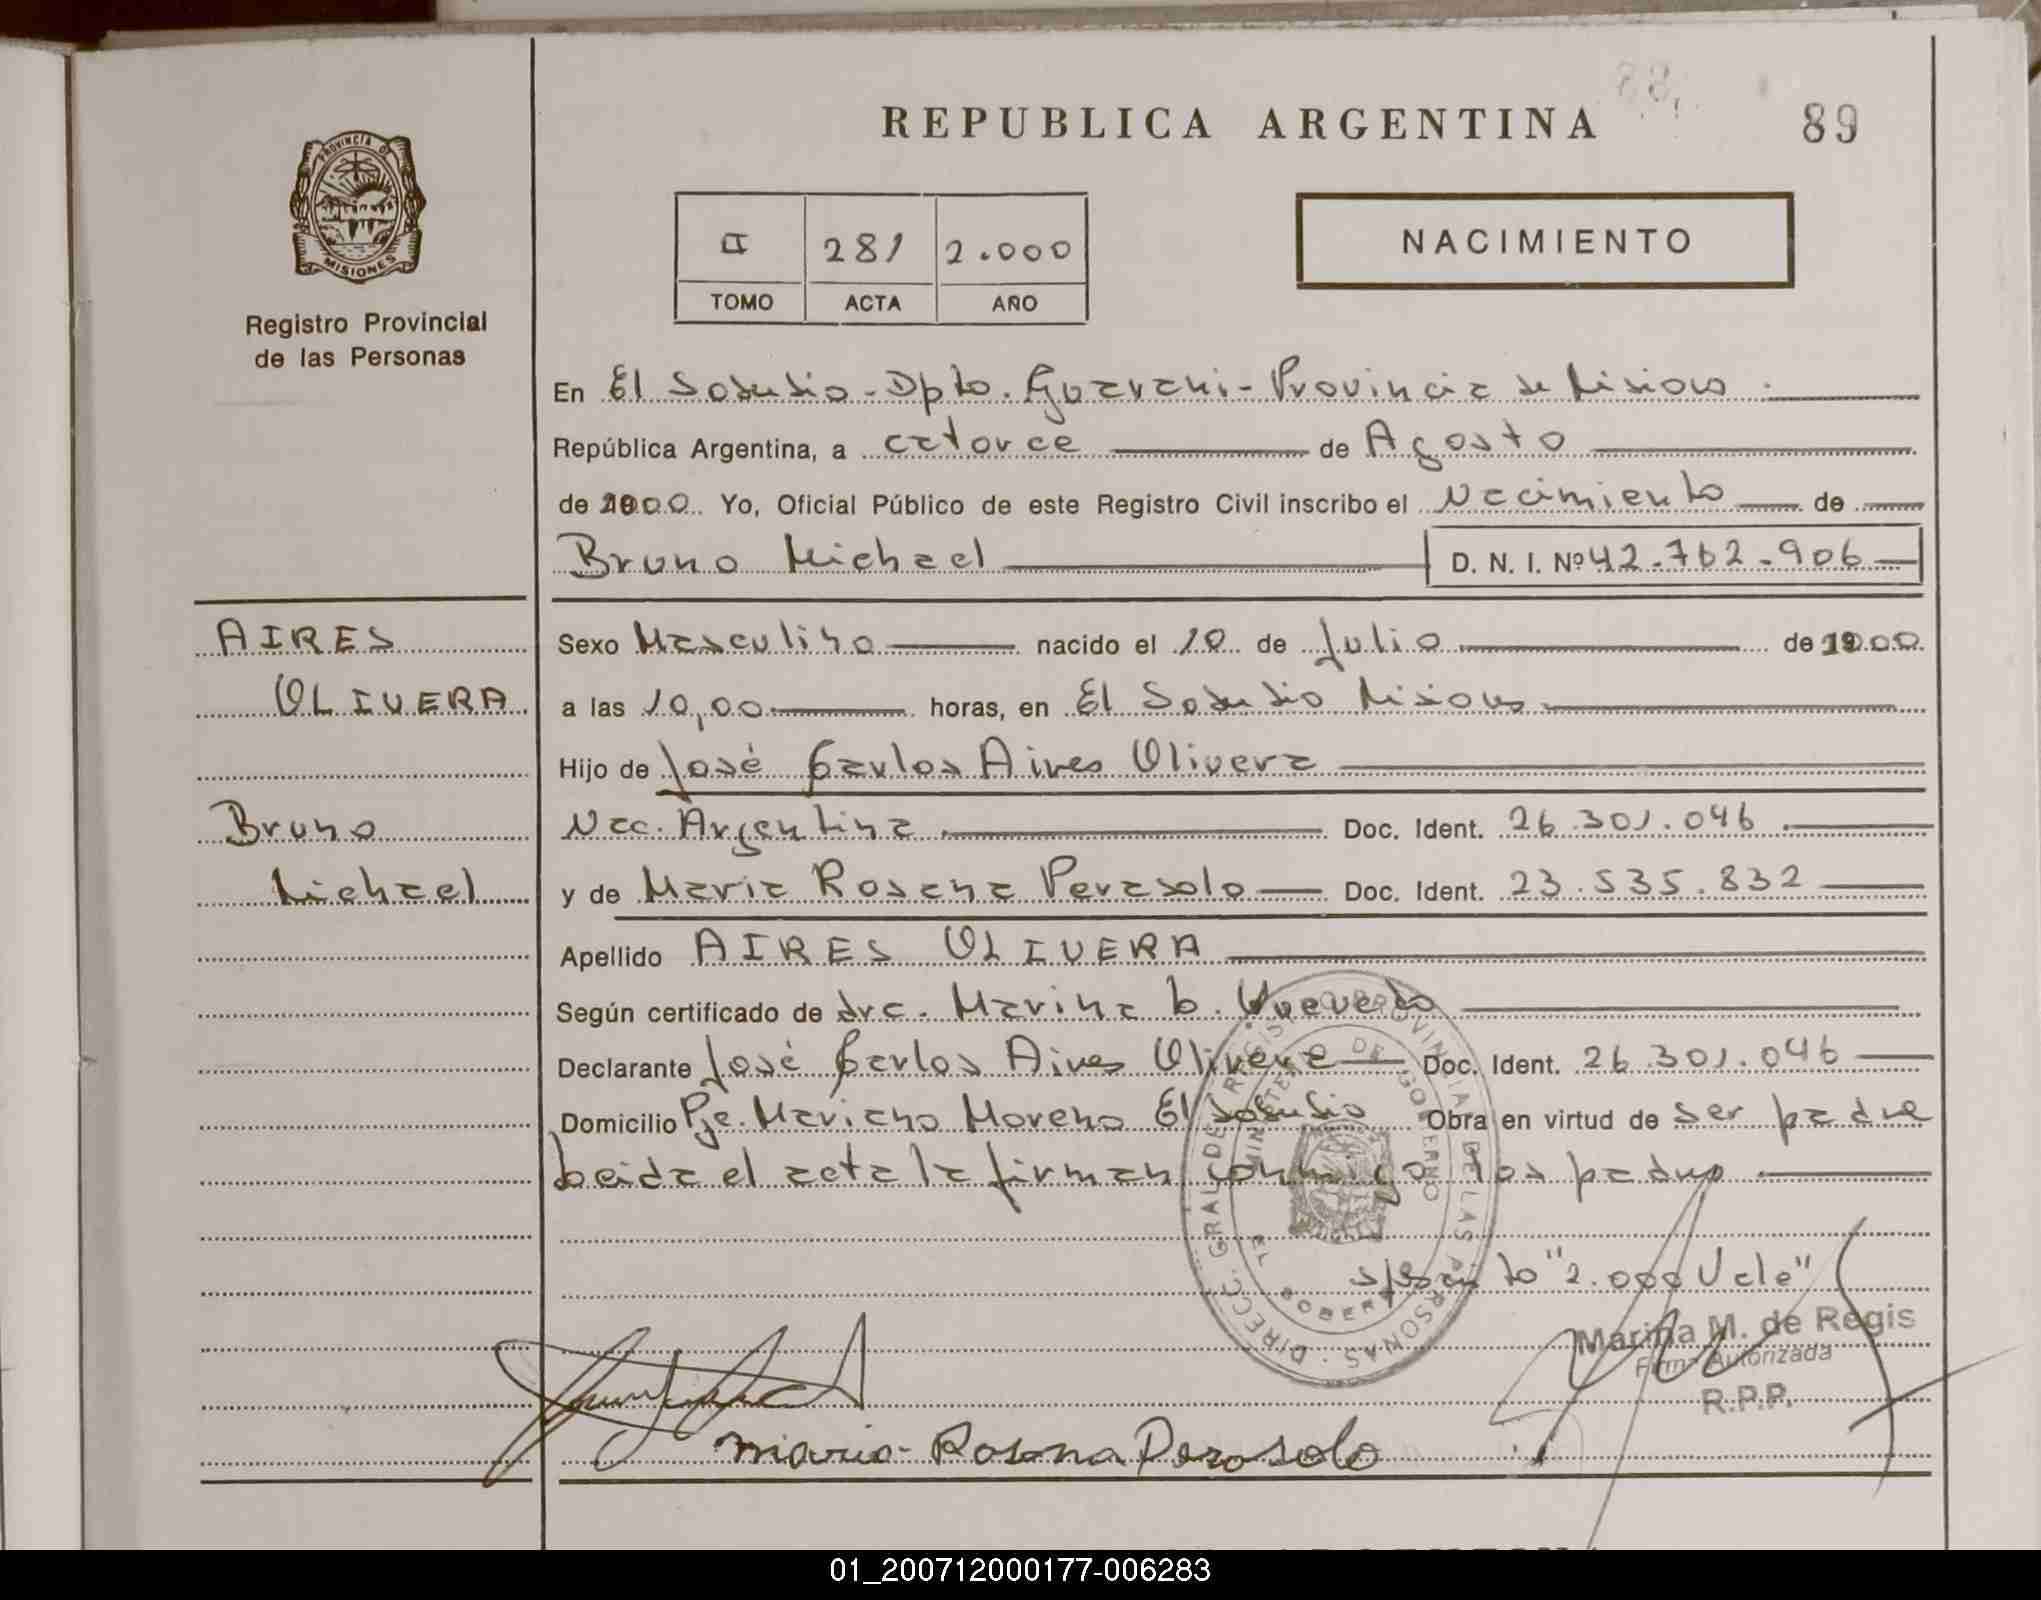 REPUBLICA ARGENTINA
88.
89
PROVINCIA DE
MISIONES
Registro Provincial
de las Personas
II 281 2.000
TOMO ACTA AÑO
NACIMIENTO
En El Soberbio - Dpto. Guarani - Provincia de Misiones.
República Argentina, a catorce de Agosto
de 2000 Yo, Oficial Público de este Registro Civil inscribo el Nacimiento de
Bruno Michael D. N. I. Nº 42-762-906
AIRES
OLIVERA
Bruno
Michael
Sexo Masculino nacido el 10 de Julio de 2000
a las 10,00 horas, en El Soberbio Misiones
Hijo de José Carlos Aires Olivera
Nac. Argentina Doc. Ident. 26.301.046
y de Maria Rosana Perasolo Doc. Ident. 23.535.832
Apellido AIRES OLIVERA
Según certificado de dra. Marina b.
Declarante José Carlos Aires Olivera Doc. Ident. 26.301.046
Domicilio Pje. Mariano Moreno El Soberbio Obra en virtud de ser padre
Leida el acta la firman conmigo los padres
DIRECC. GRAL DE REGISTRO PROVINCIAL DE LAS PERSONAS
MINISTERIO DE GOBIERNO
"2.000 Vale"
Marina M. de Regis
Firma Autorizada
R.P.P.
Maria Rosana Perosolo
01_200712000177-006283